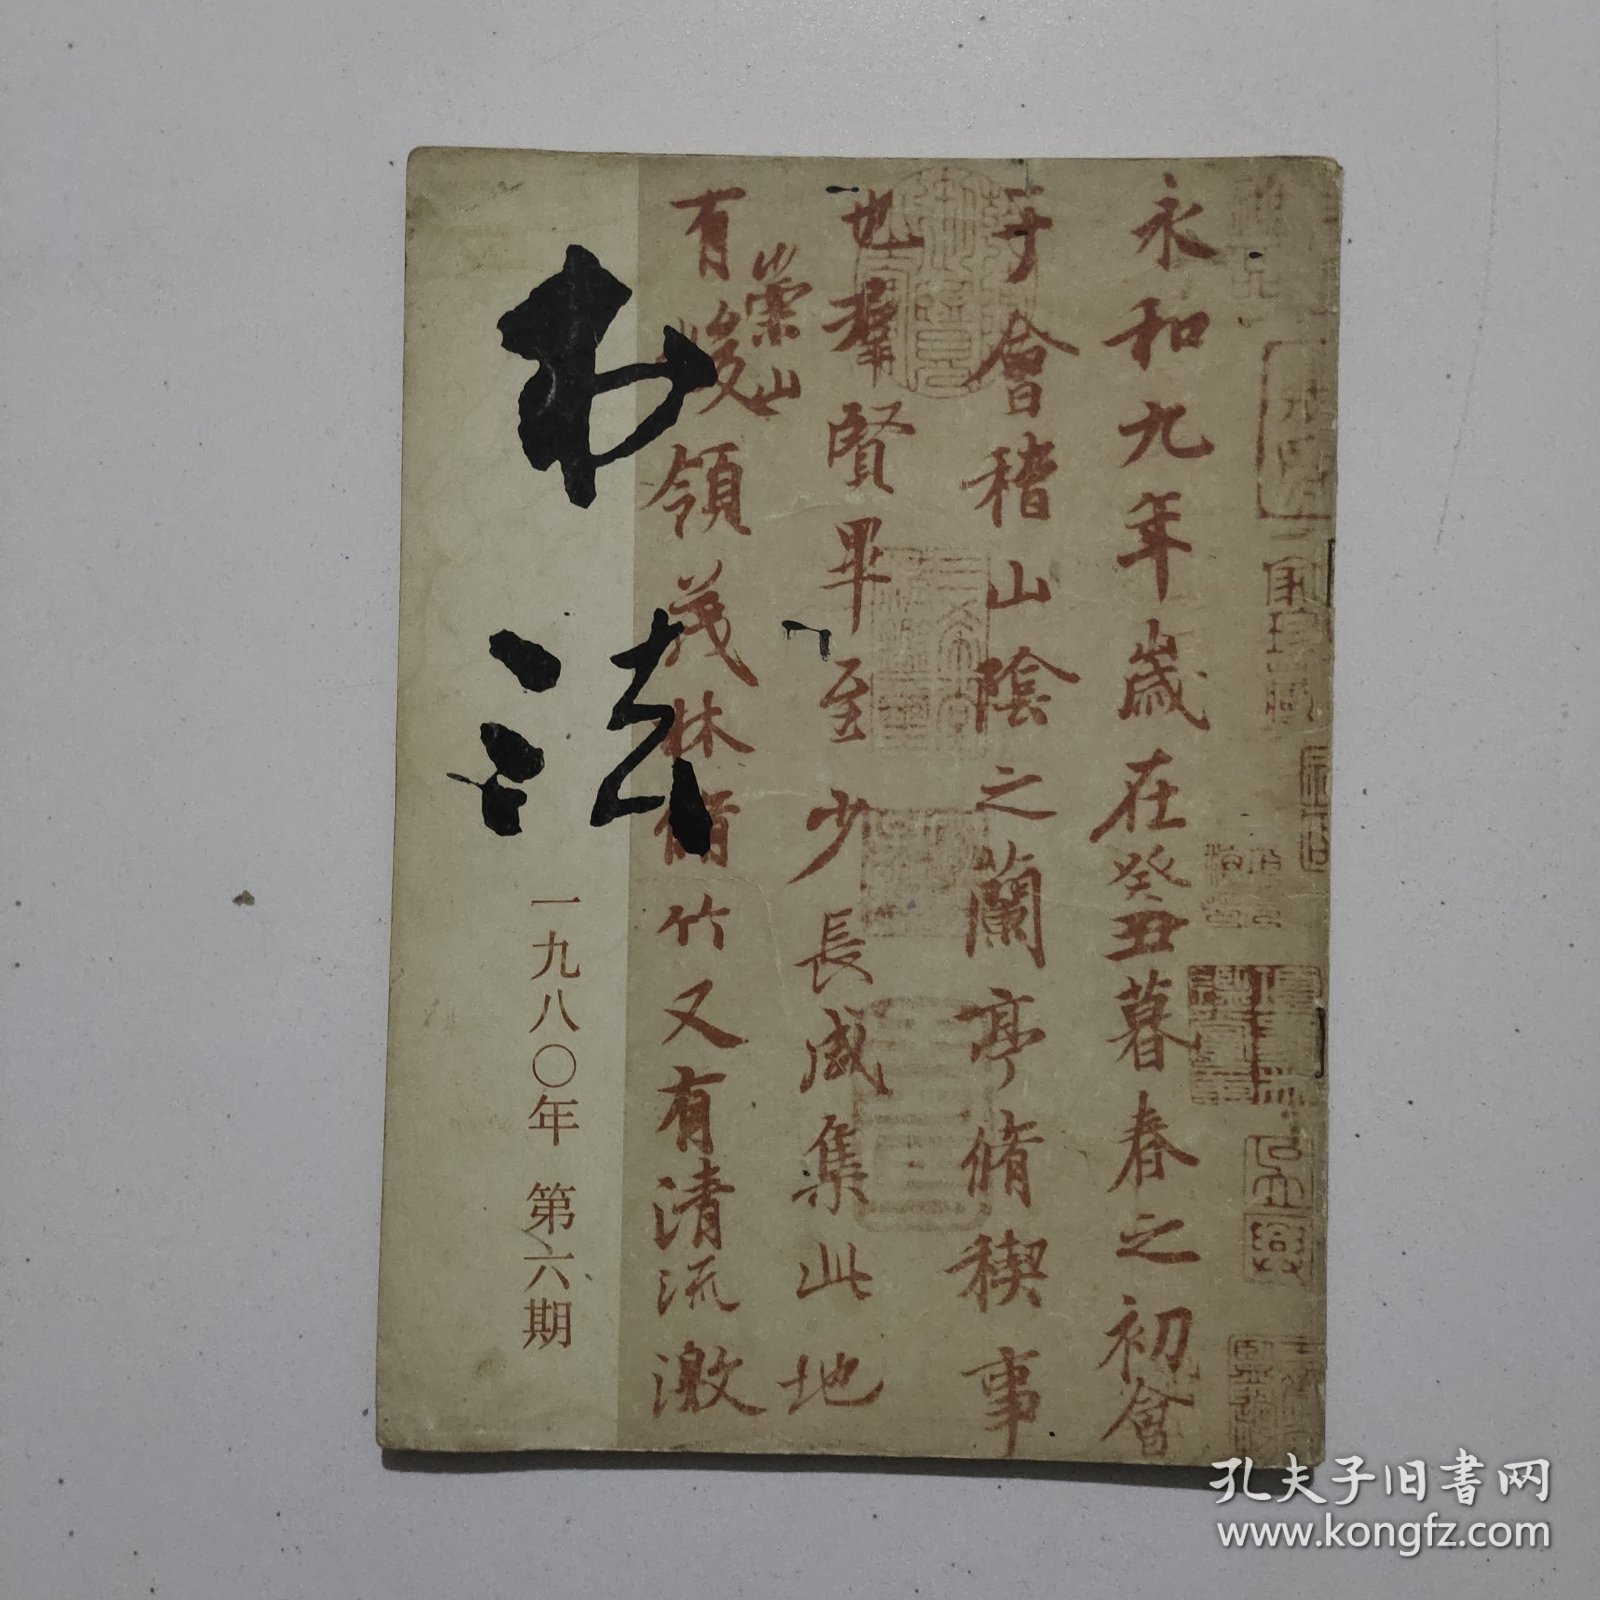 永和九年歲在癸丑暮春之初會
于會稽山陰之蘭亭脩稧事
也羣賢畢至少長咸集此地
有崇山
峻領茂林脩竹又有清流激
书法
一九八〇年 第六期
孔夫子旧书网
www.kongfz.com